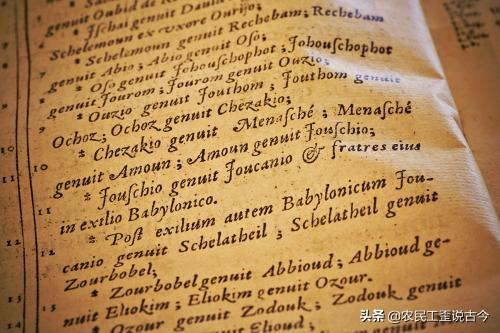 genuit Oubid de R
* Jschai genuit Dauid
Schelemoun ex vxore Ourijo;
* Schelemoun genuit Rechebam; Rechebam
genuit Abio; Abio genuit Oso;
* Oso genuit Jehouschophot; Johouschophot
genuit Jourom; Jourom genuit Ouzio;
* Ouzio genuit Jouthom; Jouthom genuit
Ochoz; Ochoz genuit Chezakio;
* Chezakio genuit Menasché; Menasché
genuit Amoun; Amoun genuit Jouschio;
* Jouschio genuit Joucanio & fratres eius
in exilio Babylonico.
* Post exilium autem Babylonicum Jou-
canio genuit Schelatheil; Schelatheil genuit
Zourbobel;
* Zourbobel genuit Abbioud; Abbioud ge-
nuit Eliokim; Eliokim genuit Ozour.
* Ozour genuit Zodouk; Zodouk genuit
genuit Elioud;
6
7
8
9
10
11
12
13
14
10
11
12
头条 @农民工歪说古今